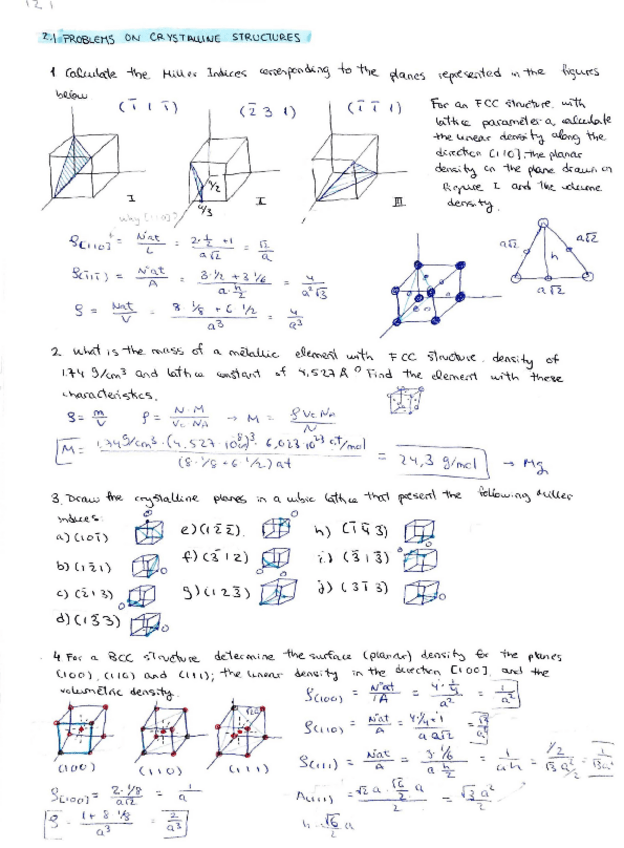 2.1 PROBLEMS ON CRYSTALLINE STRUCTURES
1 Calculate the Miller Indices corresponding to the planes represented in the figures
below
(1̅ 1 1̅) (2̅ 3 1) (1̅ 1̅ 1)
For an FCC structure, with
lattice parameter a, calculate
the linear density along the
direction [110], the planar
density on the plane drawn on
Figure I and the volume
density.
I I III
1/2
a/3
why [110]?
ρ[110] = Nat/L = (2·1/2 +1)/(a√2) = √2/a
ρ(1̅11̅) = Nat/A = (3·1/2 + 3·1/6)/(a·h/2) = 4/(a²√3)
ρ = Nat/V = (8·1/8 + 6·1/2)/a³ = 4/a³
a√2 h a√2
a√2
2. What is the mass of a metallic element with FCC structure, density of
1.74 g/cm³ and lattice constant of 4,527 Å Find the element with these
characteristics.
ρ = m/V ρ = N·M/(Vc NA) → M = ρ Vc NA/N
M = 1.74 g/cm³ · (4,527·10⁻⁸)³ · 6,023·10²³ at/mol / (8·1/8 + 6·1/2) at = 24,3 g/mol → Mg
3. Draw the crystalline planes in a cubic lattice that present the following Miller
indices:
a) (1 0 1̅) e) (1 2̅ 2̅) h) (1̅ 4̅ 3)
b) (1 2̅ 1) f) (3̅ 1 2) i) (3̅ 1 3̅)
c) (2̅ 1 3) g) (1 2 3̅) j) (3 1̅ 3)
d) (1 3̅ 3)
4 For a BCC structure determine the surface (planar) density for the planes
(100), (110) and (111); the linear density in the direction [100], and the
volumetric density.
(100) (110) (111)
ρ(100) = Nat/A = 4·1/4/a² = 1/a²
ρ(110) = Nat/A = (4·1/4+1)/(a a√2) = √2/a²
ρ(111) = Nat/A = 3·1/6/(a h/2) = 1/(a h) = (1/2)/(√3 a²/2) = 1/(√3a²)
ρ[100] = 2·1/8/(a√2) = 1/a
A(111) = (√2 a · √6/2 a)/2 = √3 a²/2
ρ = (1+8·1/8)/a³ = 2/a³
h = √6/2 a